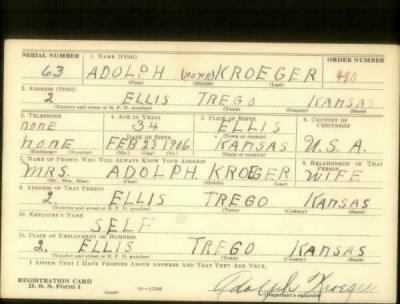 SERIAL NUMBER 1. NAME (Print) ORDER NUMBER
63 ADOLPH (NONE) KROEGER 480
(First) (Middle) (Last)
2. ADDRESS (Print)
2 ELLIS TREGO KANSAS
(Number and street or R. F. D. number) (Town) (County) (State)
3. TELEPHONE 4. AGE IN YEARS 5. PLACE OF BIRTH 6. COUNTRY OF CITIZENSHIP
NONE 34 ELLIS
DATE OF BIRTH
NONE FEB 23 1906 KANSAS U.S.A.
(Exchange) (Number) (Mo.) (Day) (Yr.) (State or country)
7. NAME OF PERSON WHO WILL ALWAYS KNOW YOUR ADDRESS 8. RELATIONSHIP OF THAT PERSON
MRS. ADOLPH KROEGER WIFE
(Mr., Mrs., Miss) (First) (Middle) (Last)
9. ADDRESS OF THAT PERSON
2 ELLIS TREGO KANSAS
(Number and street or R. F. D. number) (Town) (County) (State)
10. EMPLOYER'S NAME
SELF
11. PLACE OF EMPLOYMENT OR BUSINESS
2. ELLIS TREGO KANSAS
(Number and street or R. F. D. number) (Town) (County) (State)
I AFFIRM THAT I HAVE VERIFIED ABOVE ANSWERS AND THAT THEY ARE TRUE.
REGISTRATION CARD
D. S. S. Form 1 16—17105 Adolph Kroeger
(Registrant's signature)